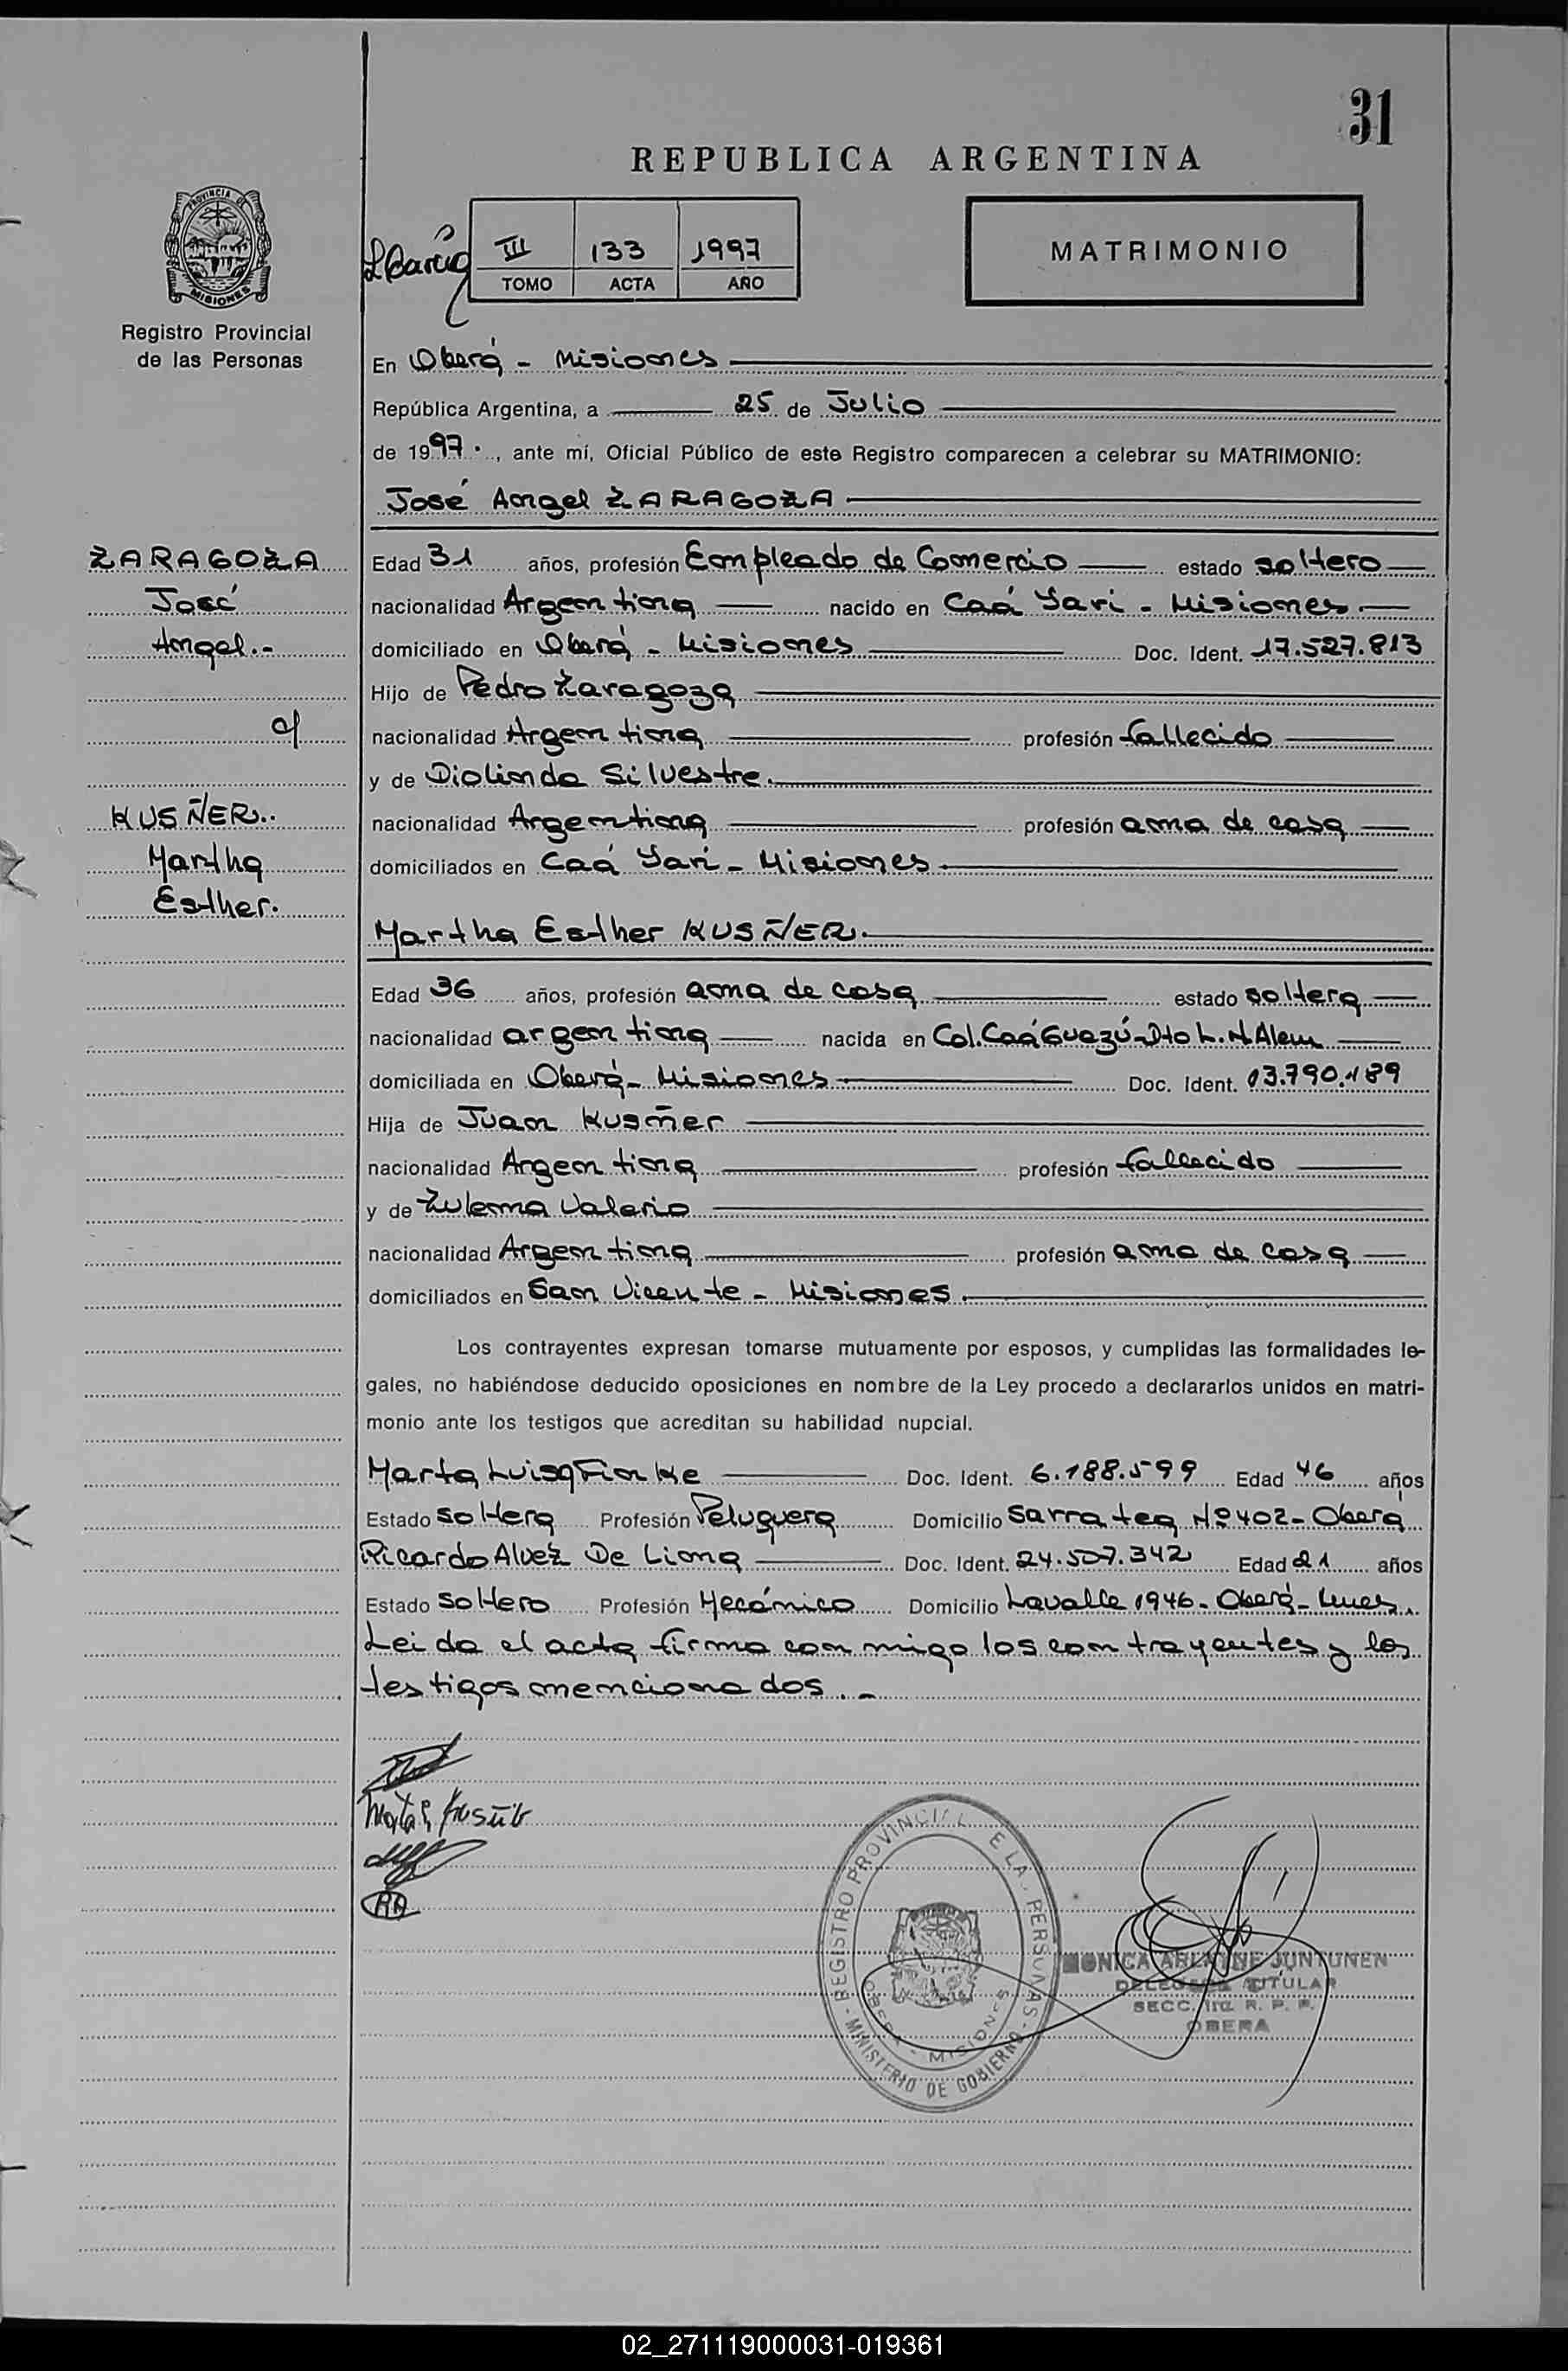 31
REPUBLICA ARGENTINA
PROVINCIA DE
MISIONES
Registro Provincial
de las Personas
III 133 1997
TOMO ACTA AÑO
MATRIMONIO
En Oberá - Misiones
República Argentina, a 25 de Julio
de 1997., ante mí, Oficial Público de este Registro comparecen a celebrar su MATRIMONIO:
José Angel ZARAGOZA
ZARAGOZA
José
Angel.-
c/
KUSÑER.
Martha
Esther.
Edad 31 años, profesión Empleado de Comercio estado soltero
nacionalidad Argentina nacido en Caá Yarí - Misiones
domiciliado en Oberá - Misiones Doc. Ident. 17.527.813
Hijo de Pedro Zaragoza
nacionalidad Argentina profesión fallecido
y de Diolinda Silvestre.
nacionalidad Argentina profesión ama de casa
domiciliados en Caá Yarí - Misiones
Martha Esther KUSÑER.
Edad 36 años, profesión ama de casa estado soltera
nacionalidad argentina nacida en Col. Caá Guazú-Dto L.N Alem
domiciliada en Oberá - Misiones Doc. Ident. 13.790.189
Hija de Juan Kusñer
nacionalidad Argentina profesión fallecido
y de Zulema Valerio
nacionalidad Argentina profesión ama de casa
domiciliados en San Vicente - Misiones.
Los contrayentes expresan tomarse mutuamente por esposos, y cumplidas las formalidades le-
gales, no habiéndose deducido oposiciones en nombre de la Ley procedo a declararlos unidos en matri-
monio ante los testigos que acreditan su habilidad nupcial.
Marta Luisa Finke Doc. Ident. 6.188.599 Edad 46 años
Estado soltera Profesión Peluquera Domicilio Sarratea Nº402-Oberá
Ricardo Alvez De Lima Doc. Ident. 24.507.342 Edad 21 años
Estado soltero Profesión Mecánico Domicilio Lavalle 1946-Oberá-Mnes.
Leida el acta firma conmigo los contrayentes y los
testigos mencionados.-
REGISTRO PROVINCIAL E LA PERSONAS
MINISTERIO DE GOBIERNO
OBERA - MISIONES
MONICA JUNTUNEN
DELEGADA TITULAR
SECC. R. P. P.
OBERA
02_271119000031-019361